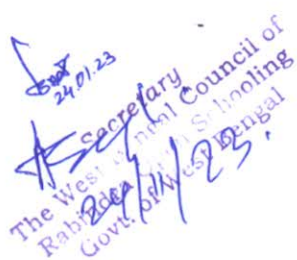 24.01.23
Secretary
The West Bengal Council of
Rabindra Open Schooling
Govt. of West Bengal
24/1/23.